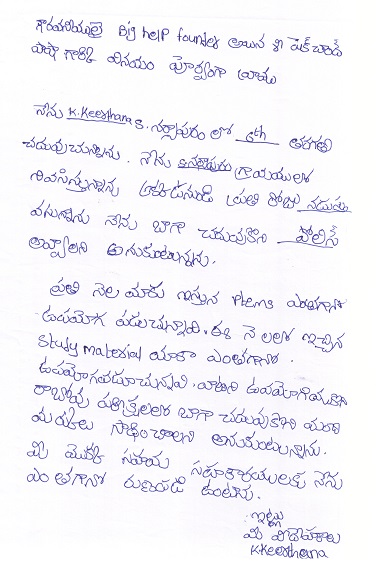 గౌరవనీయులై Big help founder అయిన శ్రీ షేక్ చాంద్
పాషా గారికి వినయం పూర్వంగా వ్రాయు
నేను K.Keerthana S. నర్సాపురం లో 6th తరగతి
చదువుచున్నాను. నేను గ్రామములో
నివసిస్తున్నాను అక్కడనుండి ప్రతి రోజు నడుస్తు
వస్తున్నాను నేను బాగా చదువుకొని పోలీస్
అవ్వాలని అనుకుంటున్నాను.
ప్రతి నెల మారు ఇస్తున items ఎంతగానో
ఉపయోగ పడుచున్నావి. ఈ నెలలో ఇచ్చిన
Study material యారా ఎంతగానో.
ఉపయోగపడుచున్నవి. వాటిని ఉపయోగించుకొని
రాబోవు పరీక్షలలో బాగా చదువుకొని మంచి
మార్కులు సాధించాలని అనుకుంటున్నాను.
మీ మొక్క సహాయ సహకారములకు నేను
ఎంతగానో రుణపడి ఉంటాను.
ఇట్లు
మీ విదేయురాలు
K.Keerthana